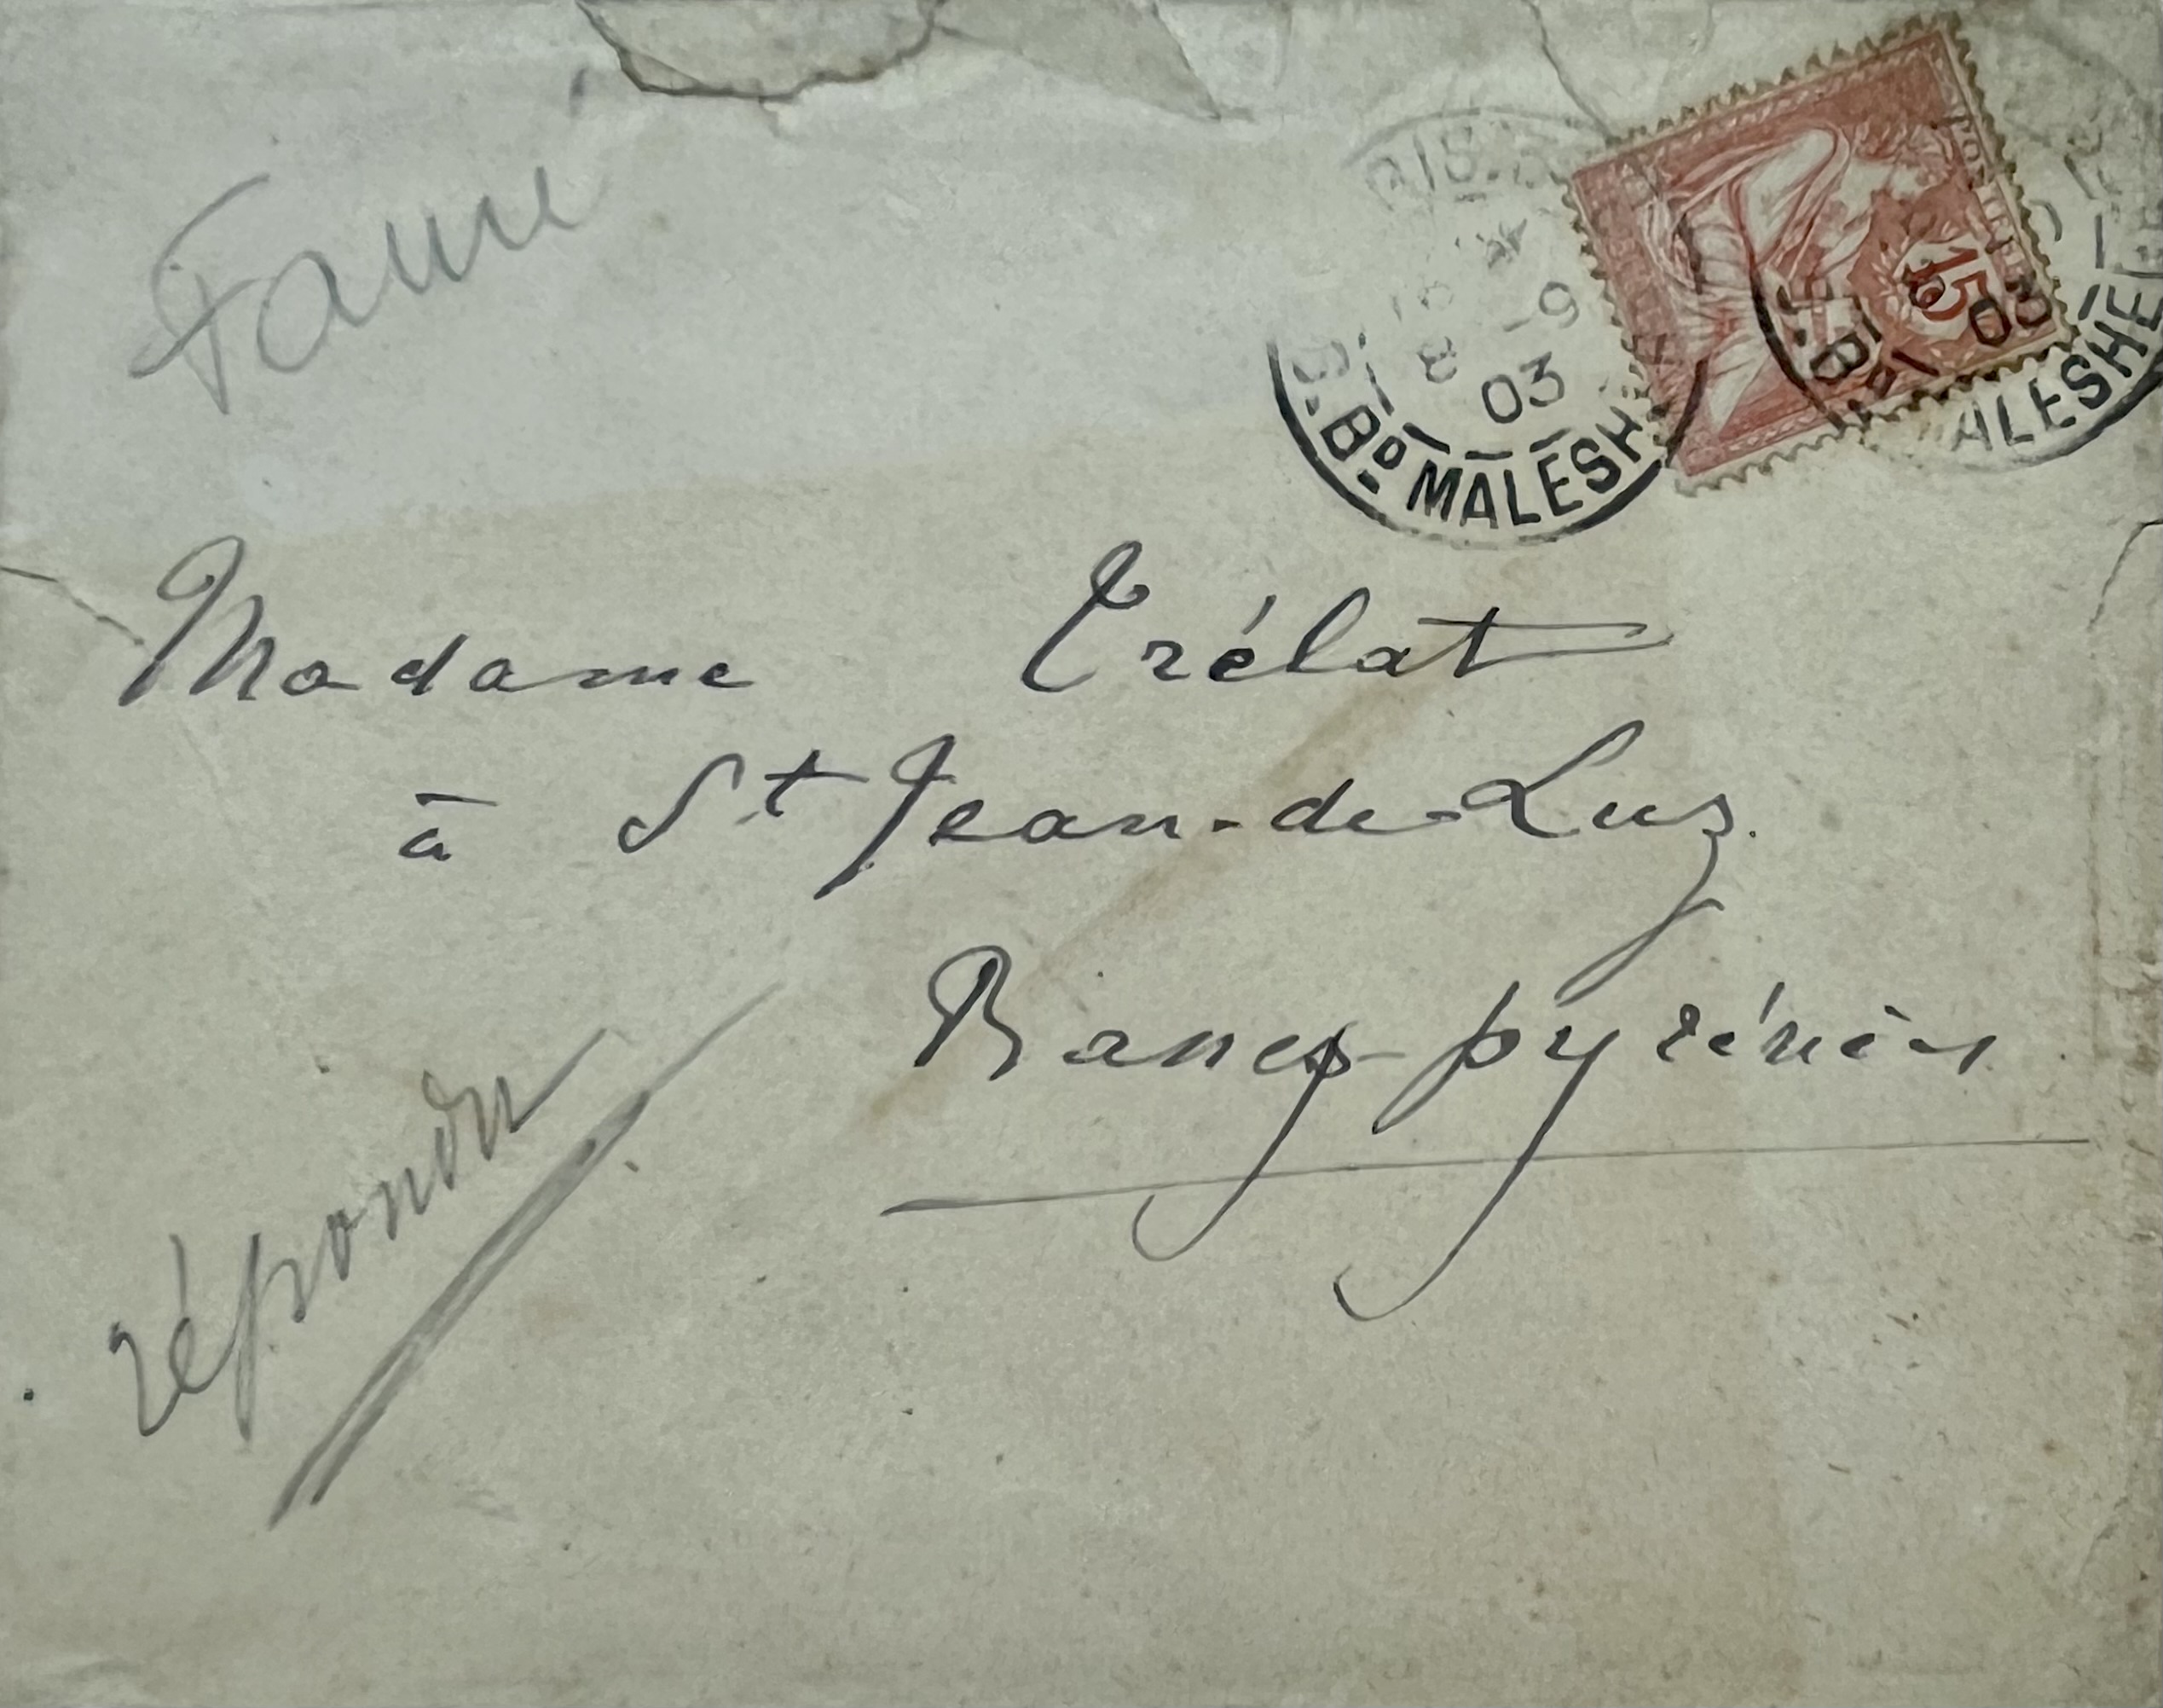 Fauré
15
8 -9
03
Bd MALESH
Bd ALESHE
03
Madame Trélat
à St Jean-de-Luz.
Basses-pyrénées
répondu